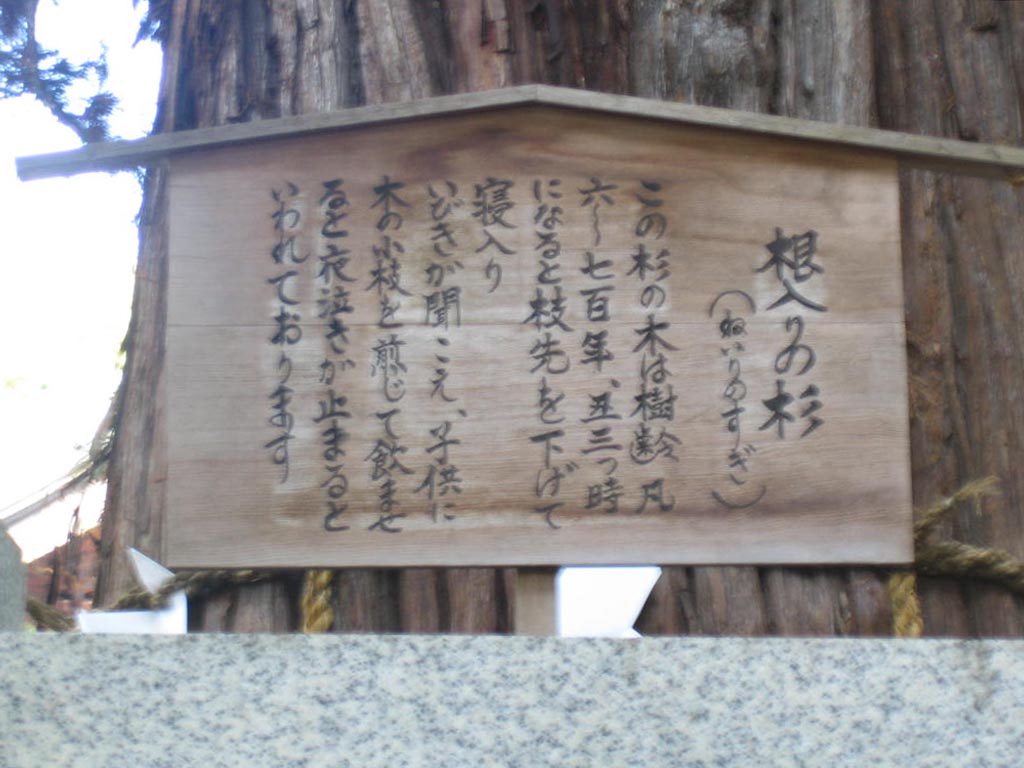 根入りの杉
(ねいりのすぎ)
この杉の木は樹齢凡
六〜七百年、丑三つ時
になると枝先を下げて
寝入り
いびきが聞こえ、子供に
木の小枝を煎じて飲ませ
ると夜泣きが止まると
いわれております